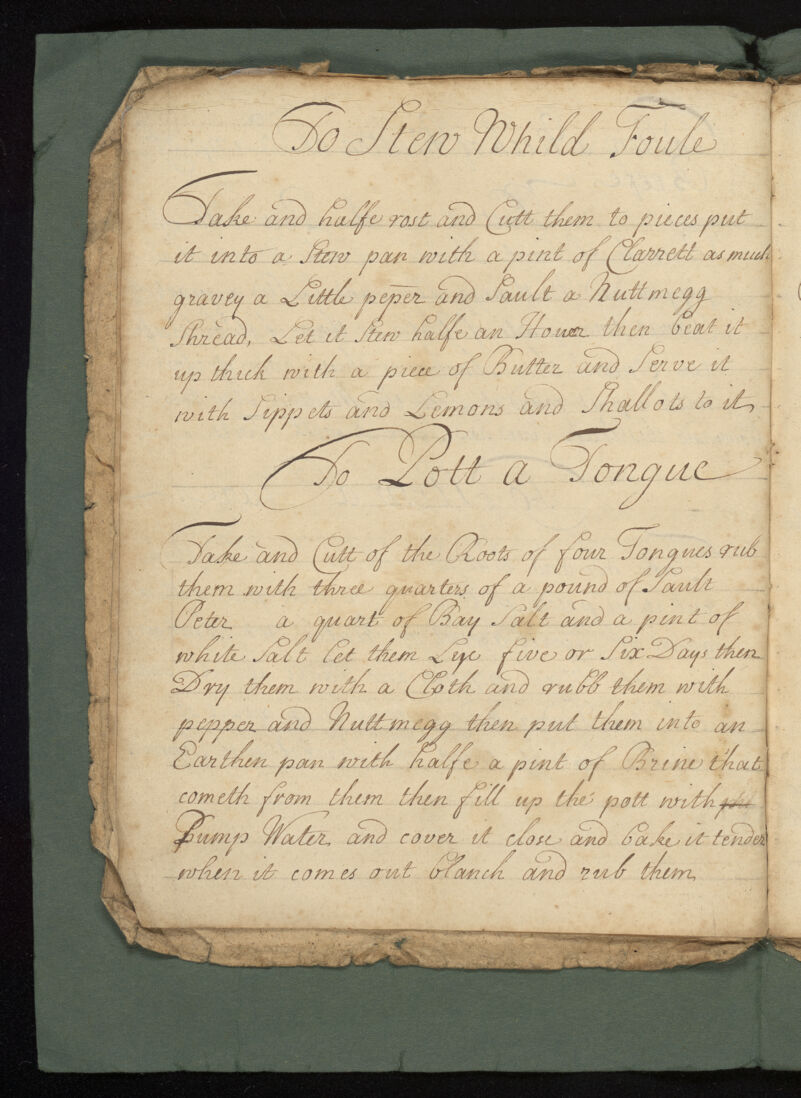 To Stew Whild Foule
Take and halfe rost and Cutt them to pieces put
it into a Stew pan with a pint of Clarrett as much
gravey a Little peper and Sault a Nuttmegg
Shread, Let it Stew halfe an Houer then beat it
up thick with a piece of Butter and Serve it
with Sippets and Lemons and Shallots to it
To Pott a Tongue
Take and Cutt of the Roots of four Tongues rub
them with three quarters of a pound of Sault
Peter a quart of Bay Salt and a pint of
white Salt let them Lye five or Six Days then
Dry them with a Cloth and rubb them with
pepper and Nuttmegg then put them into an
Earthen pan with halfe a pint of Brine that
cometh from them then fill up the pott with
Pump Water and cover it close and bake it tender
when it comes out blanch and rub them